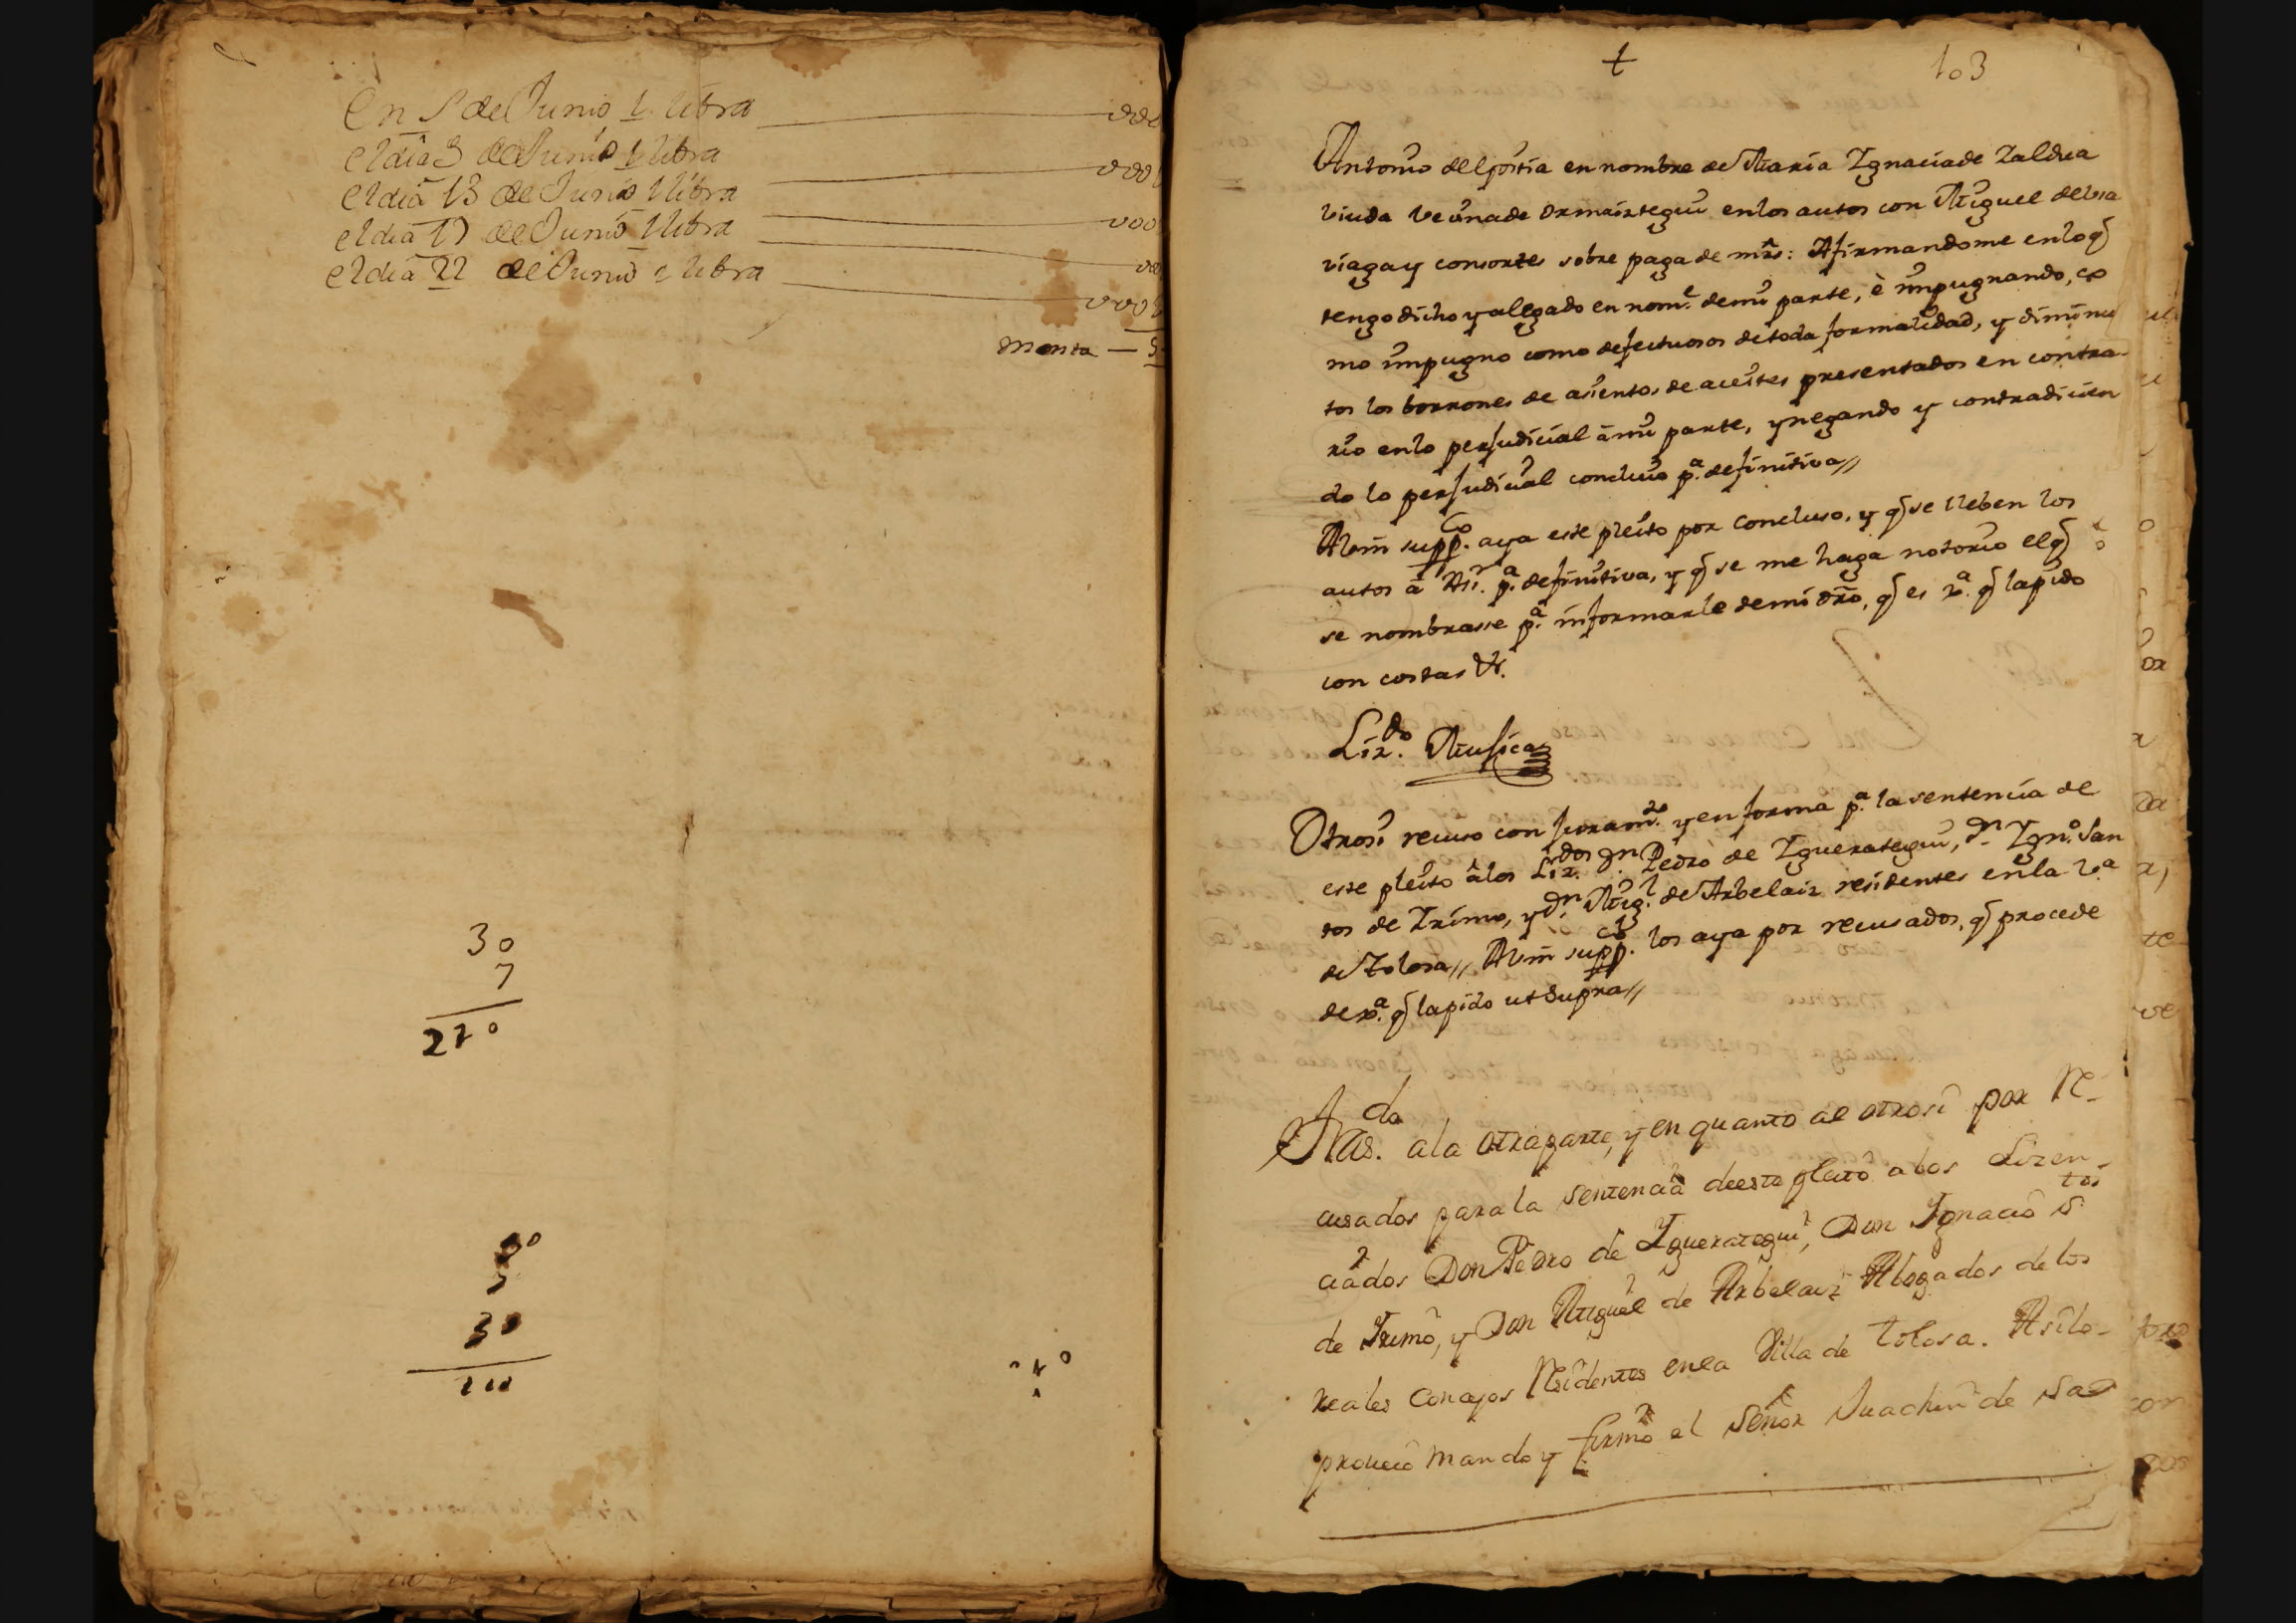 En 1 de Junio 1 libra — 001
el dia 3 de Junio 1 libra — 0001
el dia 13 de Junio 1 libra — 001
el dia 17 de Junio 1 libra — 00
el dia 22 de Junio 1 libra — 0001
monta — 5
30
7
210
30
110
t
103
Antonio de Lposia en nombre de Maria Ignacia de Zaldua
viuda vecina de Ormaiztegui en los autos con Miguel de Usa
viaga y consortes sobre paga de mrs: Afirmandome en lo q
tengo dicho y alegado en nome. de mi parte, è impugnando, co
mo impugno como defectuosos de toda formalidad, y diminu
tos los borrones de asientos de aceites presentados en contra
rio en lo perjudicial à mi parte, y negando y contradicien
do lo perjudicial concluio pa. definitiva//
A Vm suppco. aya este pleito por concluso, y q se lleben los
autos â Asr. pa. definitiva, y q se me haga notorio el q
se nombrasse pa. informarle de mi dro, q es xa. q la pido
con costas &.
Lizdo. Musica
Otrosi recuso con juramto. y en forma pa. la sentencia de
este pleito â los Lizdos. Dn. Pedro de Yguerategui, Dn. Ygno. San
tos de Irimo, y Dn. Migl. de Arbelaiz residentes en la Va
de Tolosa// A Vm suppco. los aya por recusados, q procede
de xa. q la pido ut supra//
Trasdo. a la otra parte, y en quanto al otrosi por Re-
cusados para la sentencia de este pleito a los Lizen-
ciados Don Pedro de Yguerategui, Don Ygnacio Stos
de Irimo, y Don Miguel de Arbelaiz Abogados de los
reales Consejos Residentes en la Villa de Tolosa. Asi lo-
proueio mando y firmo el Señor Juachin de Sa